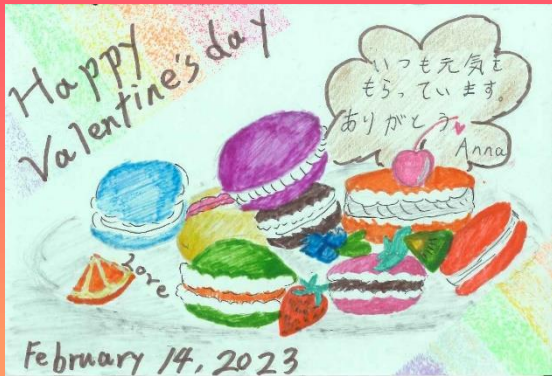 Happy
Valentine's day
いつも元気を
もらっています。
ありがとう
Anna
Love
February 14, 2023